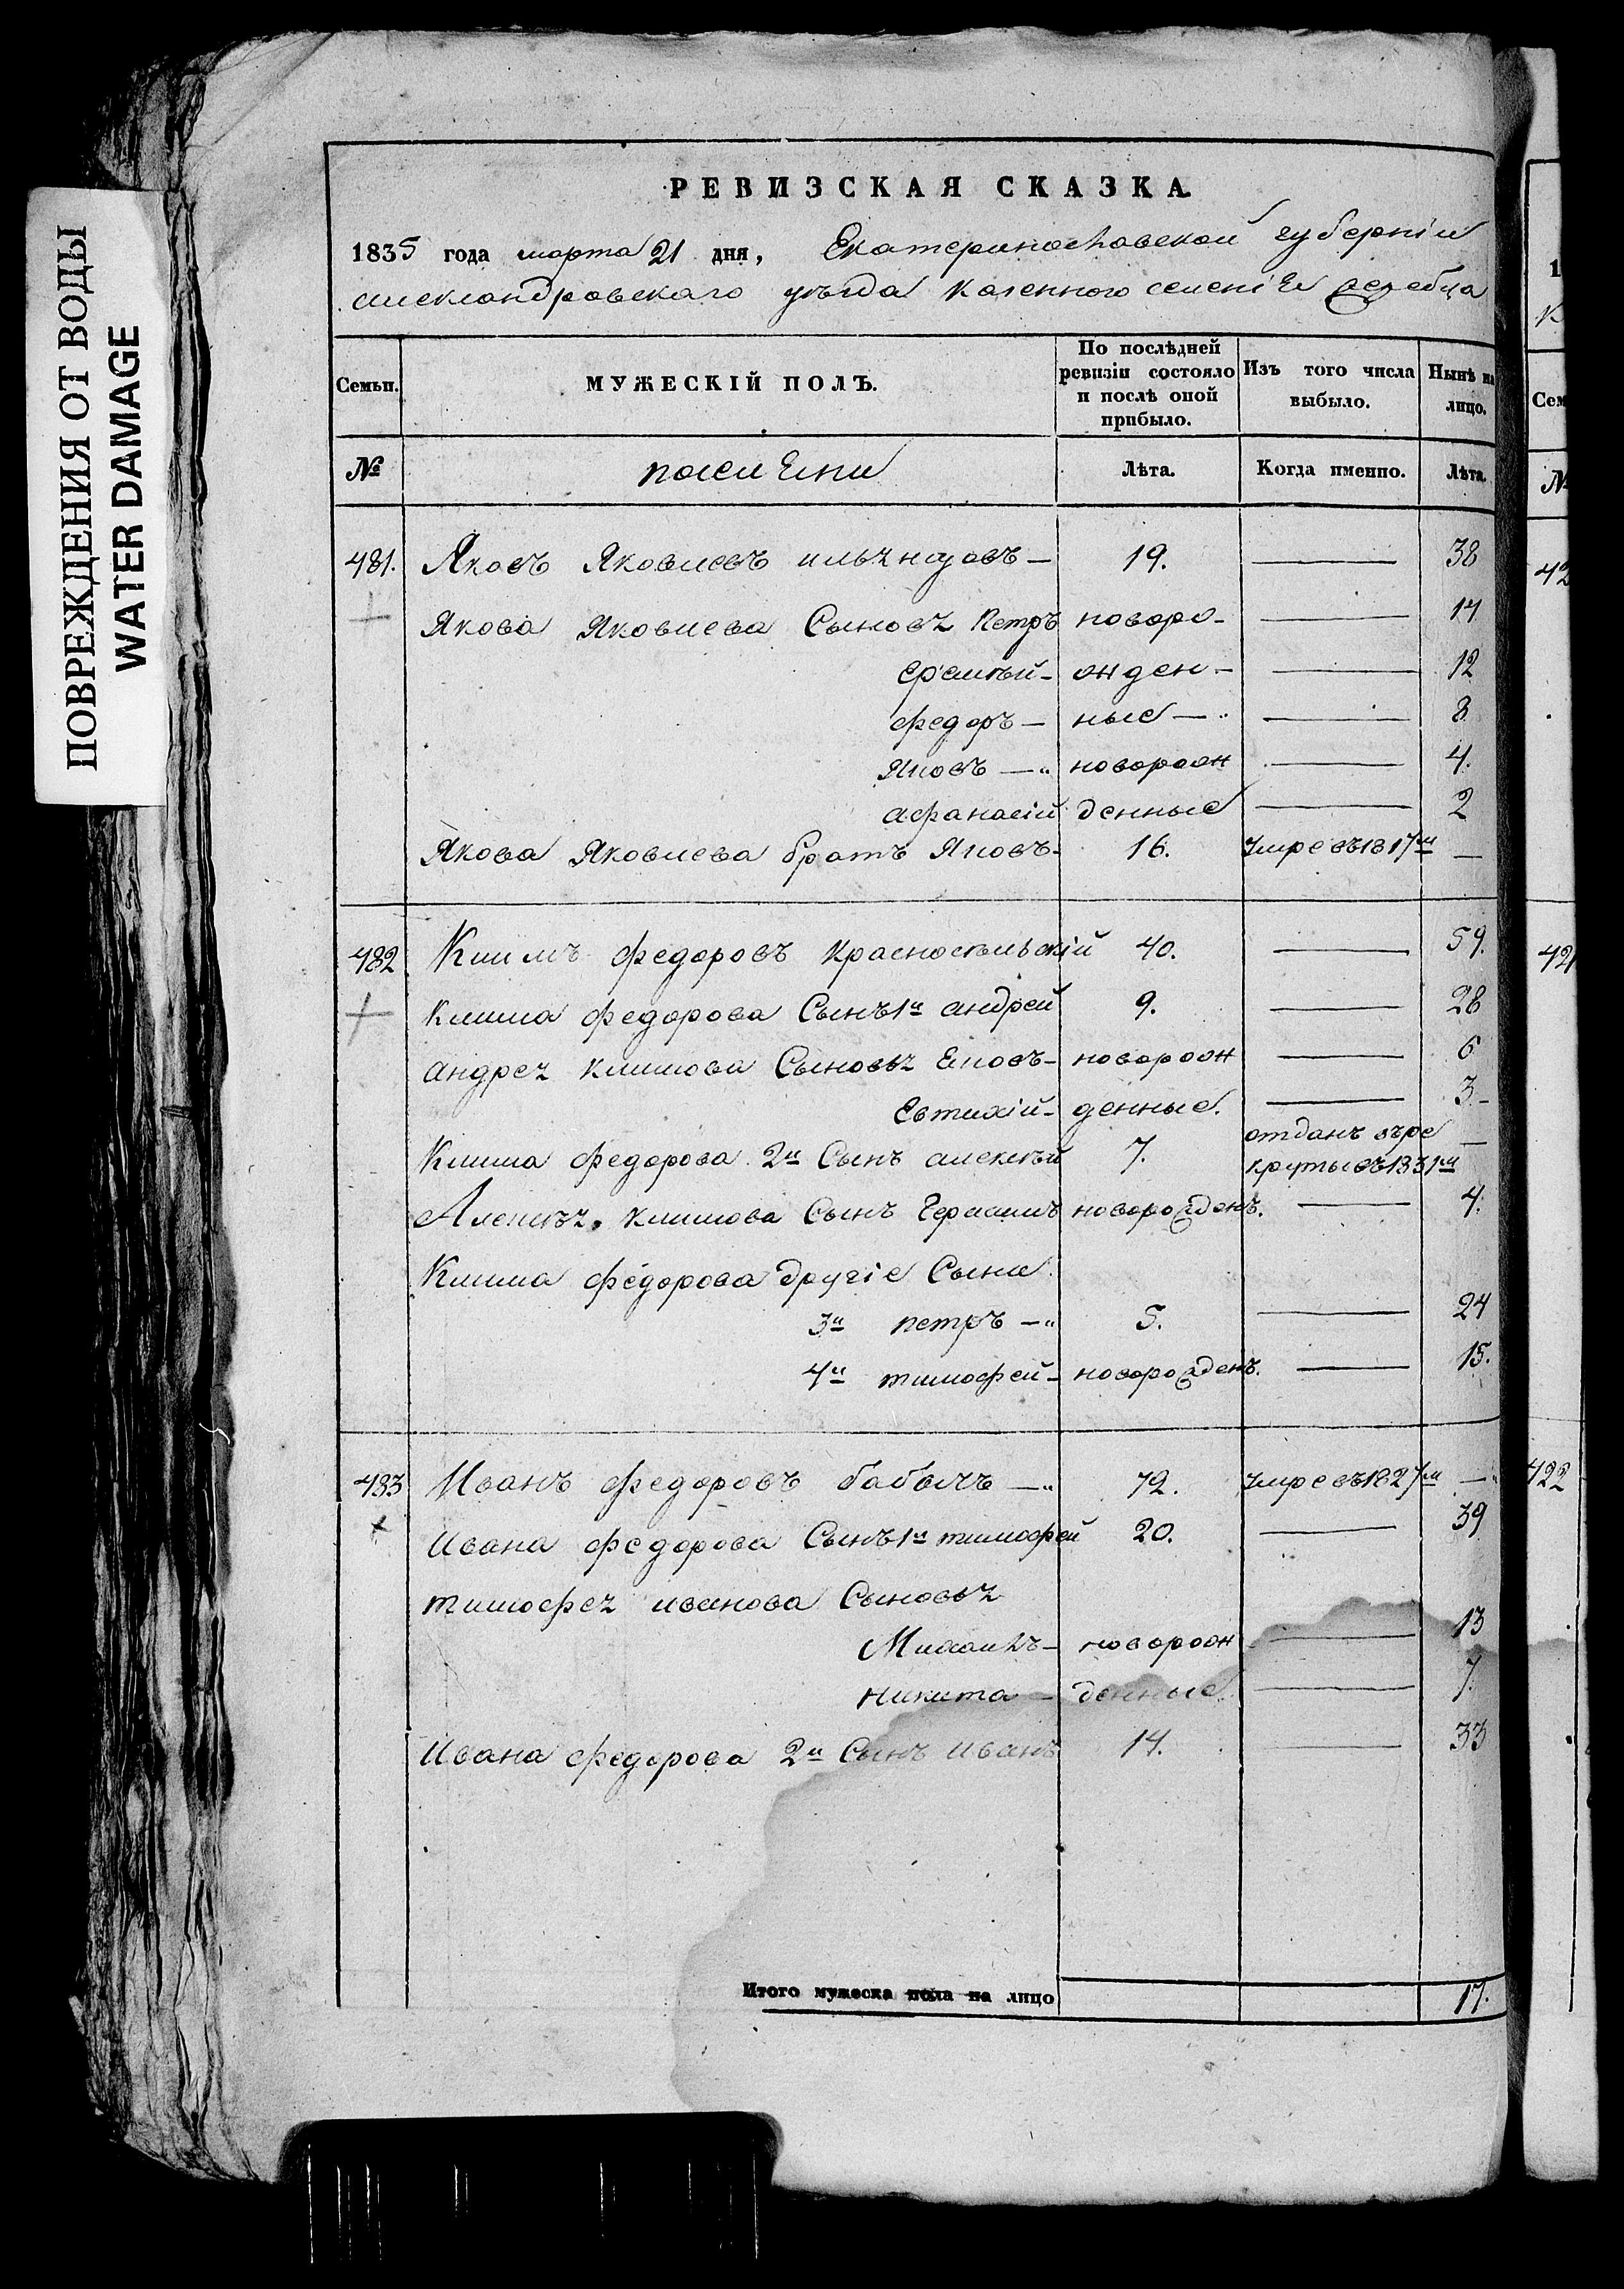 ПОВРЕЖДЕНИЯ ОТ ВОДЫ
WATER DAMAGE
РЕВИЗСКАЯ СКАЗКА.
1835 года марта 21 дня, Екатеринославской губерніи
александровскаго уѣзда казенного селенія жеребца
Семьи. МУЖЕСКІЙ ПОЛЪ. По послѣдней ревизіи состояло и послѣ оной прибыло. Изъ того числа выбыло. Нынѣ на лицо.
№ Лѣта. Когда именно. Лѣта.
481. Яковъ Яковлевъ — 19. — 38
Якова Яковлева Сыновья Петръ новоро- — 14
Еремѣй - жден - — 12
федоръ — ные — — 8
Яковъ — новорож — 4.
афанасій денные — 2
Якова Яковлева братъ Яковъ - 16. Умре въ 1817м —
482 Климъ федоровъ Красносельскій 40. — 59.
Клима федорова Сынъ 1й андрей 9. — 28
андрея климова Сыновья - новорож — 6
Евтихій - денные. — 3 -
Клима федорова 2й Сынъ алексѣй 7. отданъ въ ре —
круты въ 1831м
Алексѣя климова Сынъ Герасимъ новорожденъ. — 4.
Клима федорова другіе Сыны
3й петръ — 5. — 24
4й тимофей - новорожденъ. — 15.
483 Иванъ федоровъ бабычъ — 72. Умре въ 1827м —
Ивана федорова Сынъ 1й тимофей 20. — 39
тимофея иванова Сыновья
Михаилъ - новорож — 13
никита - денные. — 7.
Ивана федорова 2й Сынъ иванъ 14. — 33
Итого мужеска пола на лицо 17.